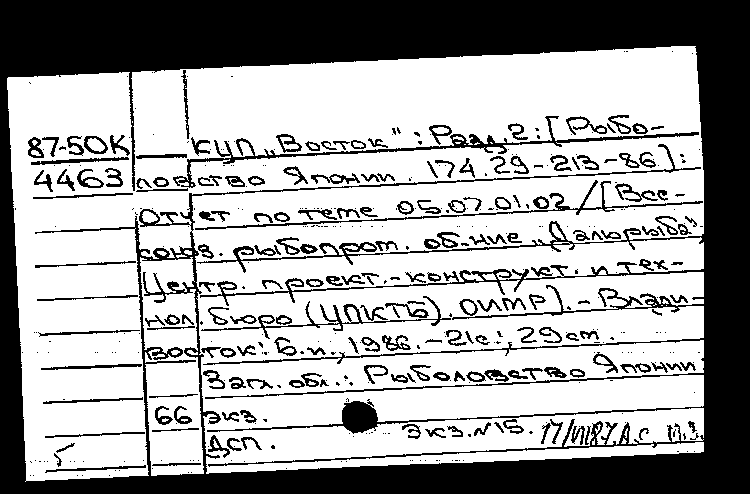 87-50К КЦП „Восток" : Разд. 2 : [Рыбо-
4463 ловство Японии. 174.29-213-86] :
Отчет по теме 05.07.01.02 / [Все-
союз. рыбопром. об-ние „Дальрыба",
Центр. проект.-конструкт. и тех-
нол. бюро (ЦПКТБ). ОИМР]. - Влади-
восток : Б.и., 1986. - 21с.; 29 см.
Загл. обл.: Рыболовство Японии.
66 экз.
ДСП. экз. №15.